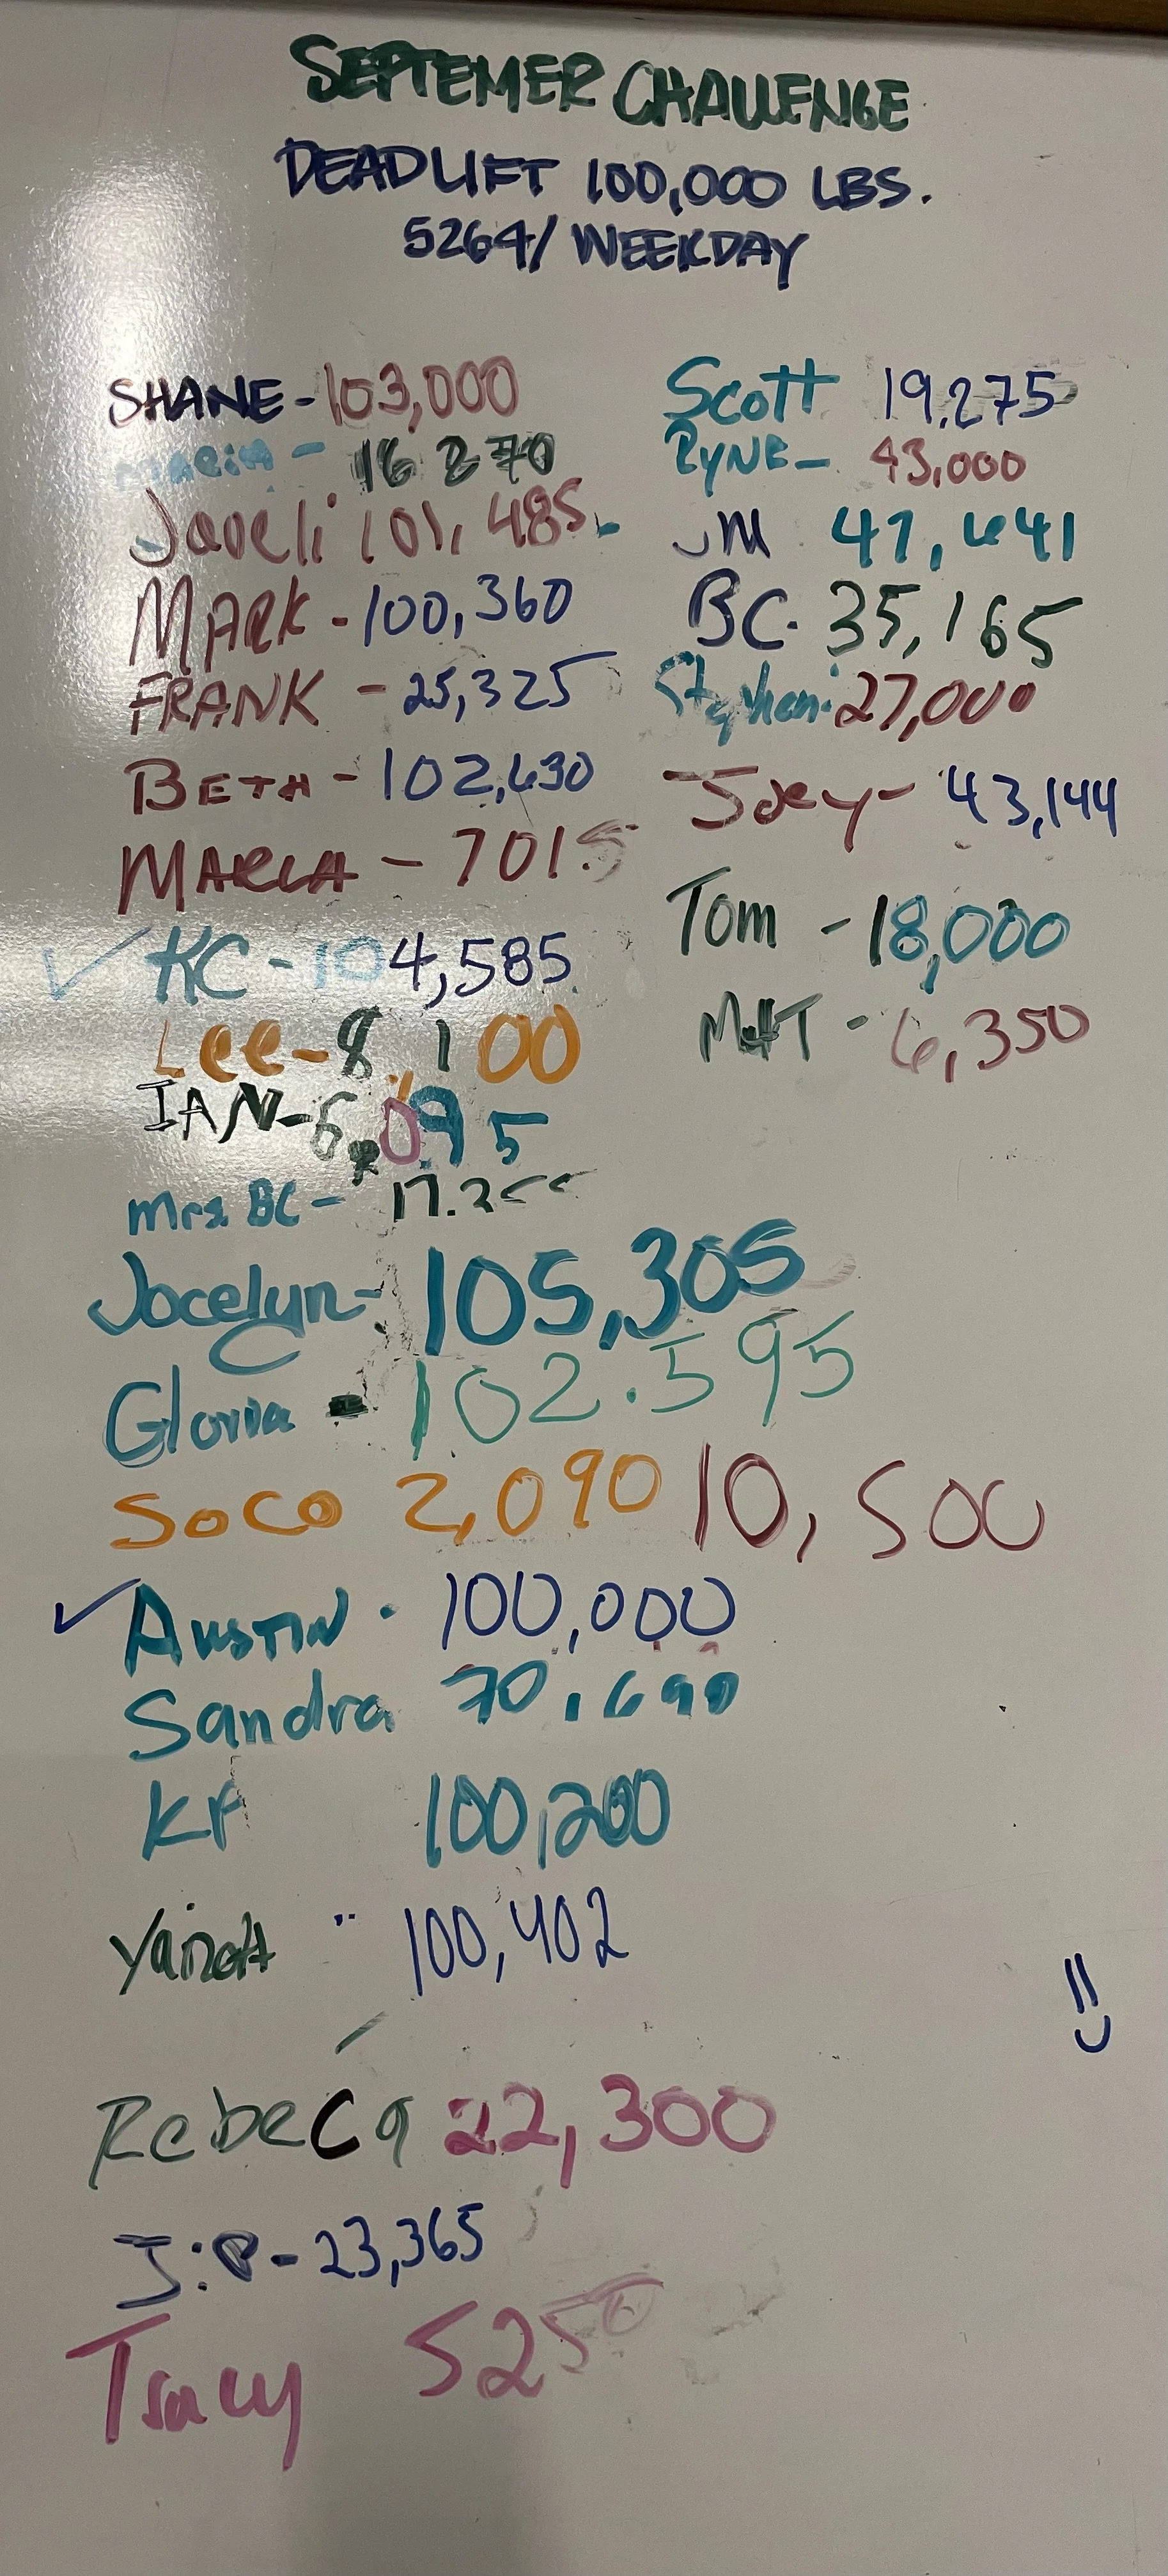 SEPTEMER CHALLENGE
DEADLIFT 100,000 LBS.
5264/ WEEKDAY
SHANE - 103,000
16 270
Javeli 101,485
MARK - 100,360
FRANK - 25,325
BETH - 102,630
MARLA - 7015
✓ KC - 104,585
Lee - 8,100
IAN - 6,095
Mrs. BC -
Jocelyn - 105,305
Gloria - 102.595
SOCO 2,090 10,500
✓ AUSTIN - 100,000
Sandra 70,690
KF 100,200
100,402
RebeCa 22,300
J:P - 23,365
Tracy 5250
Scott 19,275
RYNE - 43,000
JM 47,641
BC - 35,165
27,000
Joey - 43,144
Tom - 18,000
MATT - 6,350